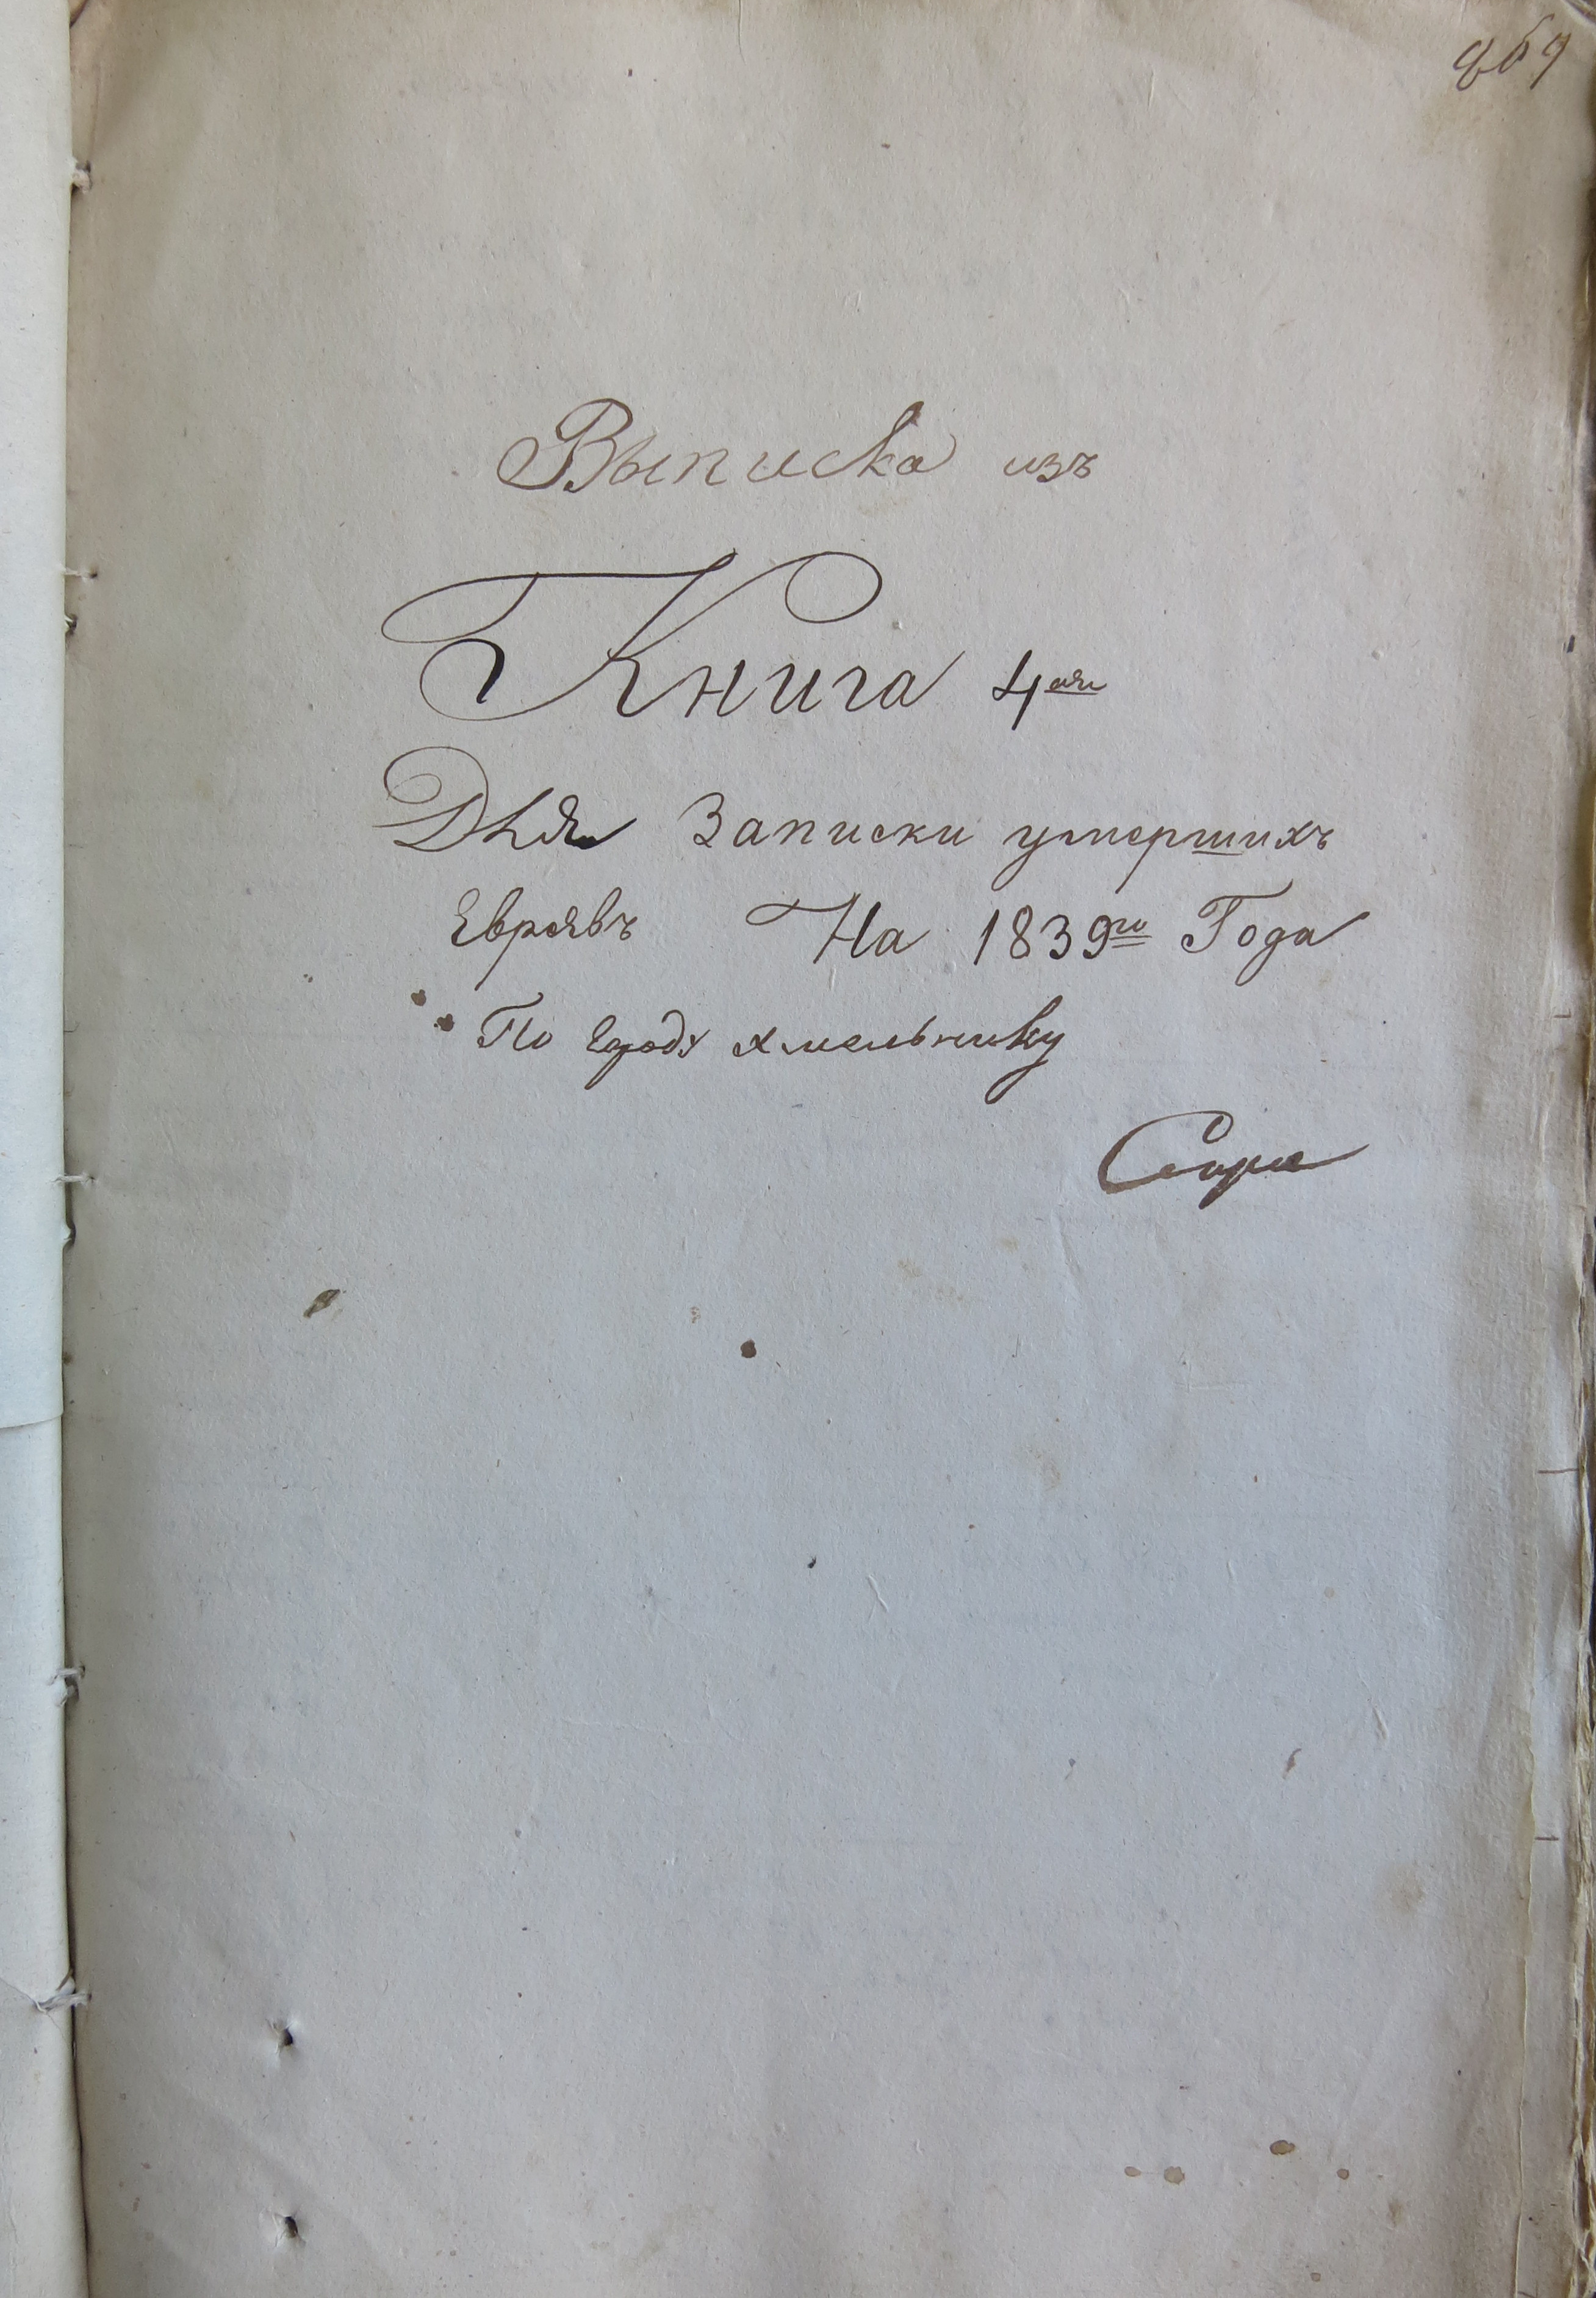 869
Выписка изъ
Книга 4ая
Для Записки умершихъ
Евреявъ На 1839го Года
По городу хмельнику